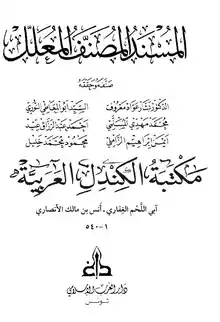 المسند المصنف المعلل
صنفه وحققه
الدكتور بشار عواد معروف السيد أبو المعاطي النوري
محمد مهدي المسلمي أحمد عبد الرزاق عيد
أيمن إبراهيم الزاملي محمود محمد خليل
مكتبة الكندل العربية
آبي اللحم الغفاري ، أنس بن مالك الأنصاري
١ - ٥٤٠
دار الغرب الإسلامي
تونس